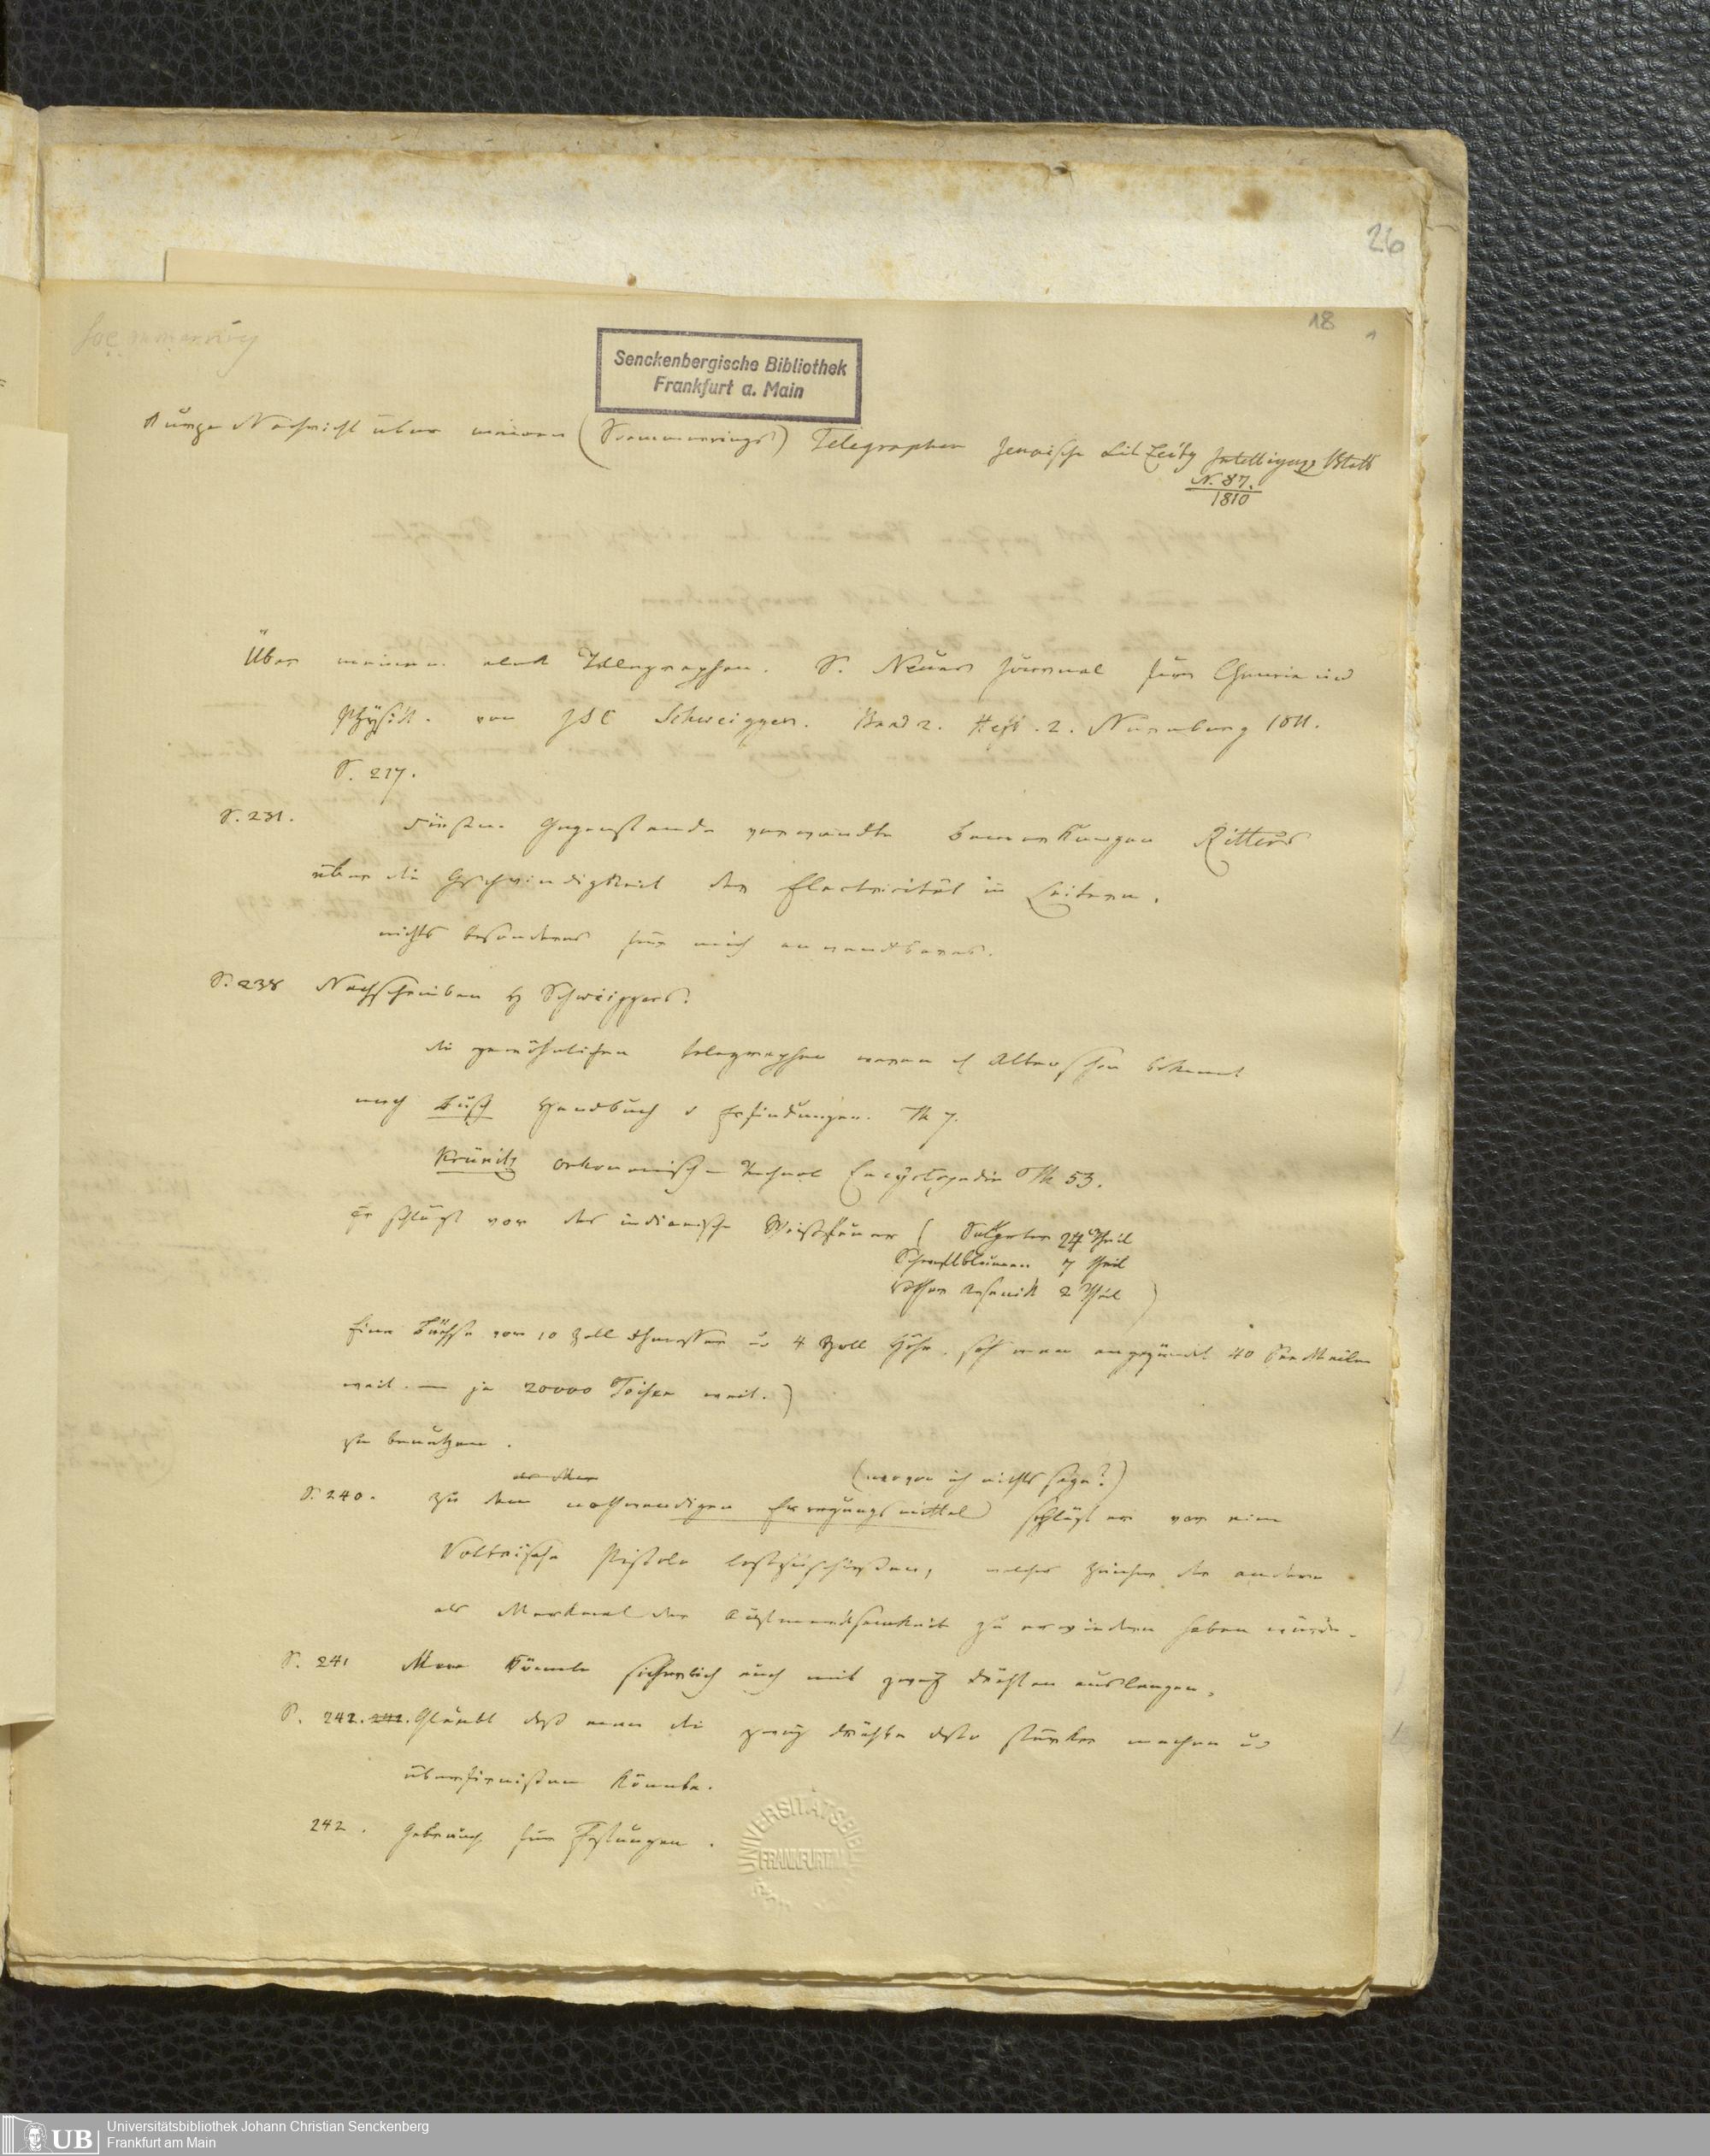 26
18
Soemmerring
Senckenbergische Bibliothek
Frankfurt a. Main
Kurze Nachricht über meinen (Soemmerrings) Telegraphen Jenaische Lit Zeitg Intelligenz Blatt
N. 87.
1810
Über meinen elect Telegraphen. S. Neues Journal für Chemie und
Physik. von JSC Schweigger. Band 2. Heft. 2. Nürnberg 1811.
S. 217.
S. 231. Gegenstande verwandte Bemerkungen Ritters
über die Geschwindigkeit der Electricität in Leitern.
nichts besonderes für mich anwendbares.
S. 238 Nachschreiben H Schweiggers.
die gewöhnlichen telegraphen waren Alten schon bekannt
nach Busch Handbuch d Erfindungen. Th 7.
Krünitz oekonomische Technol Encyclopedie Th 53.
Er schlägt vor das indianische Weissfeuer ( Salpeter 24 Theil
Schwefelblumen 7 Theil
Rother Arsenik 2 Theil )
Eine Büchse von 10 Zoll Dmesser u 4 Zoll Höhe. sah man angezündet 40 See Meilen
weit. — ja 20000 Toisen weit. )
zu benutzen.
(wovon ich nichts sage?)
S. 240. zu dem nothwendigen Erregungsmittel schlägt er vor eine
Voltaische Pistole loszuschießen, welches Zeichen der andere
als Merkmal der Aufmerksamkeit zu erwiedern haben würde.
S. 241 Man könnte sicherlich auch mit zwey Dräthen auslangen.
S. 242. 242. Glaubt daß man die zwey Dräthe desto stärker machen u
überfirnißen könnte.
242. Gebrauch für Festungen.
UNIVERSITÄTSBIBL
FRANKFURT AM
UB
Universitätsbibliothek Johann Christian Senckenberg
Frankfurt am Main